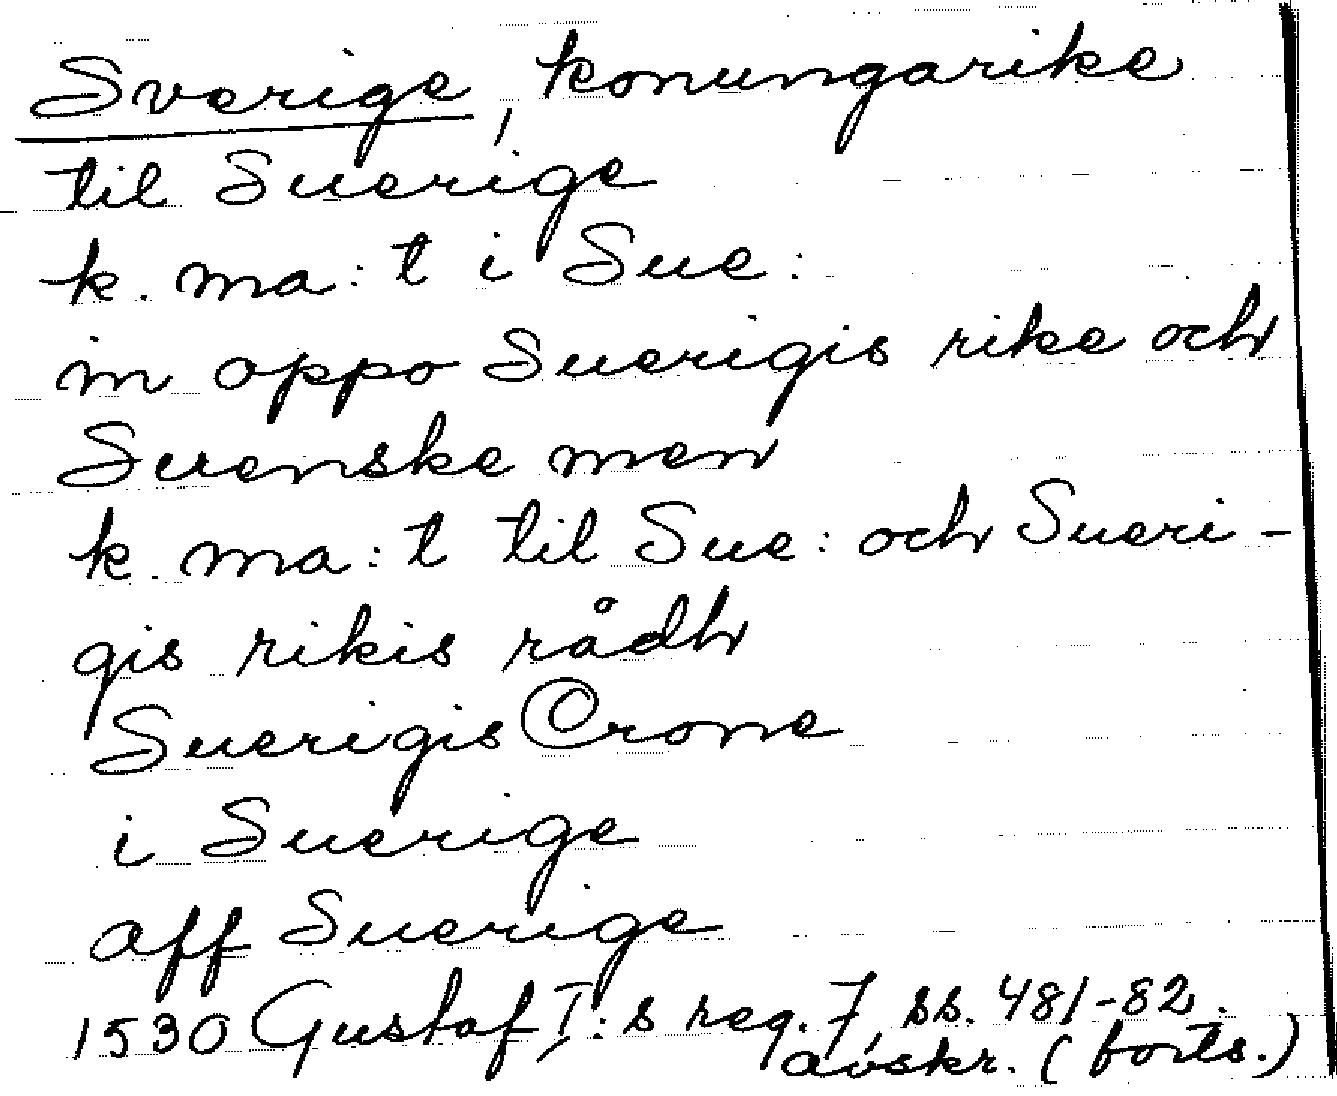 Sverige, konungarike
til Suerige
k. ma:t i Sue:
in oppo Suerigis rike och
Suenske men
k. ma:t til Sue: och Sueri-
gis rikis rådh
Suerigis Crone
i Suerige
aff Suerige
1530 Gustaf I:s reg. 7, ss. 481-82.
avskr. (forts.)